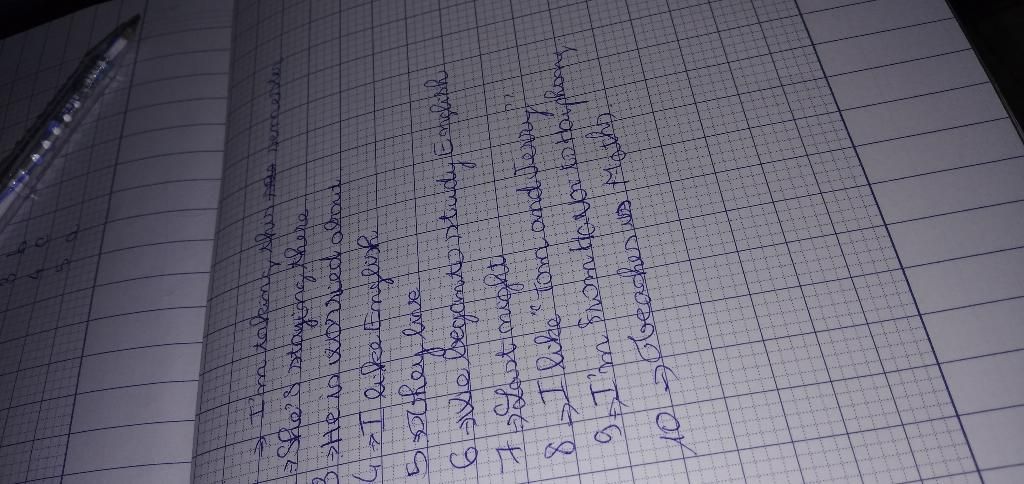 → I'm taking the
→ She's staying there
3 → He is worried about
4 → I like English
5 → They live
6 → We began to study English
7 → Last night
8 → I like "Tom and Jerry"
9 → I'm from
10 → teaches us Maths
3 b
4 c
5 a